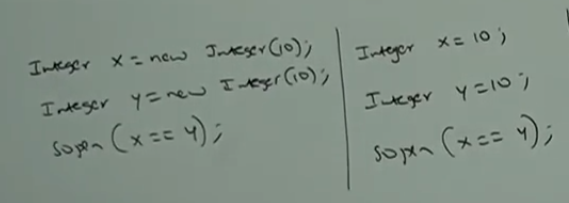 Integer x = new Integer(10);
Integer y = new Integer(10);
Sopln (x == y);
Integer x = 10;
Integer y = 10;
Sopln (x == y);